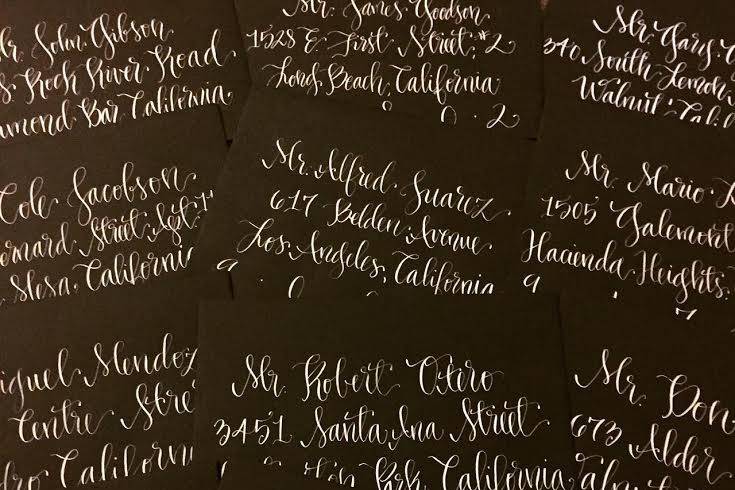 Mr. John Gibson
Rock River Road
Diamond Bar California
Mr. James Goodson
1528 E. First Street, #2
Long Beach, California
2
Mr. Gary
340 South Lemon
Walnut Cali
Cole Jacobson
ernard Street Apt.
Mesa California
Mr. Alfred Suarez
617 Belden Avenue
Los Angeles, California
9
Mr. Mario
1505 Galemont
Hacienda Heights
9
iguel Mendoz
Centre Stre
dro California
Mr. Robert Otero
3451 Santa Ana Street
Park California
Mr. Don
673 Alder